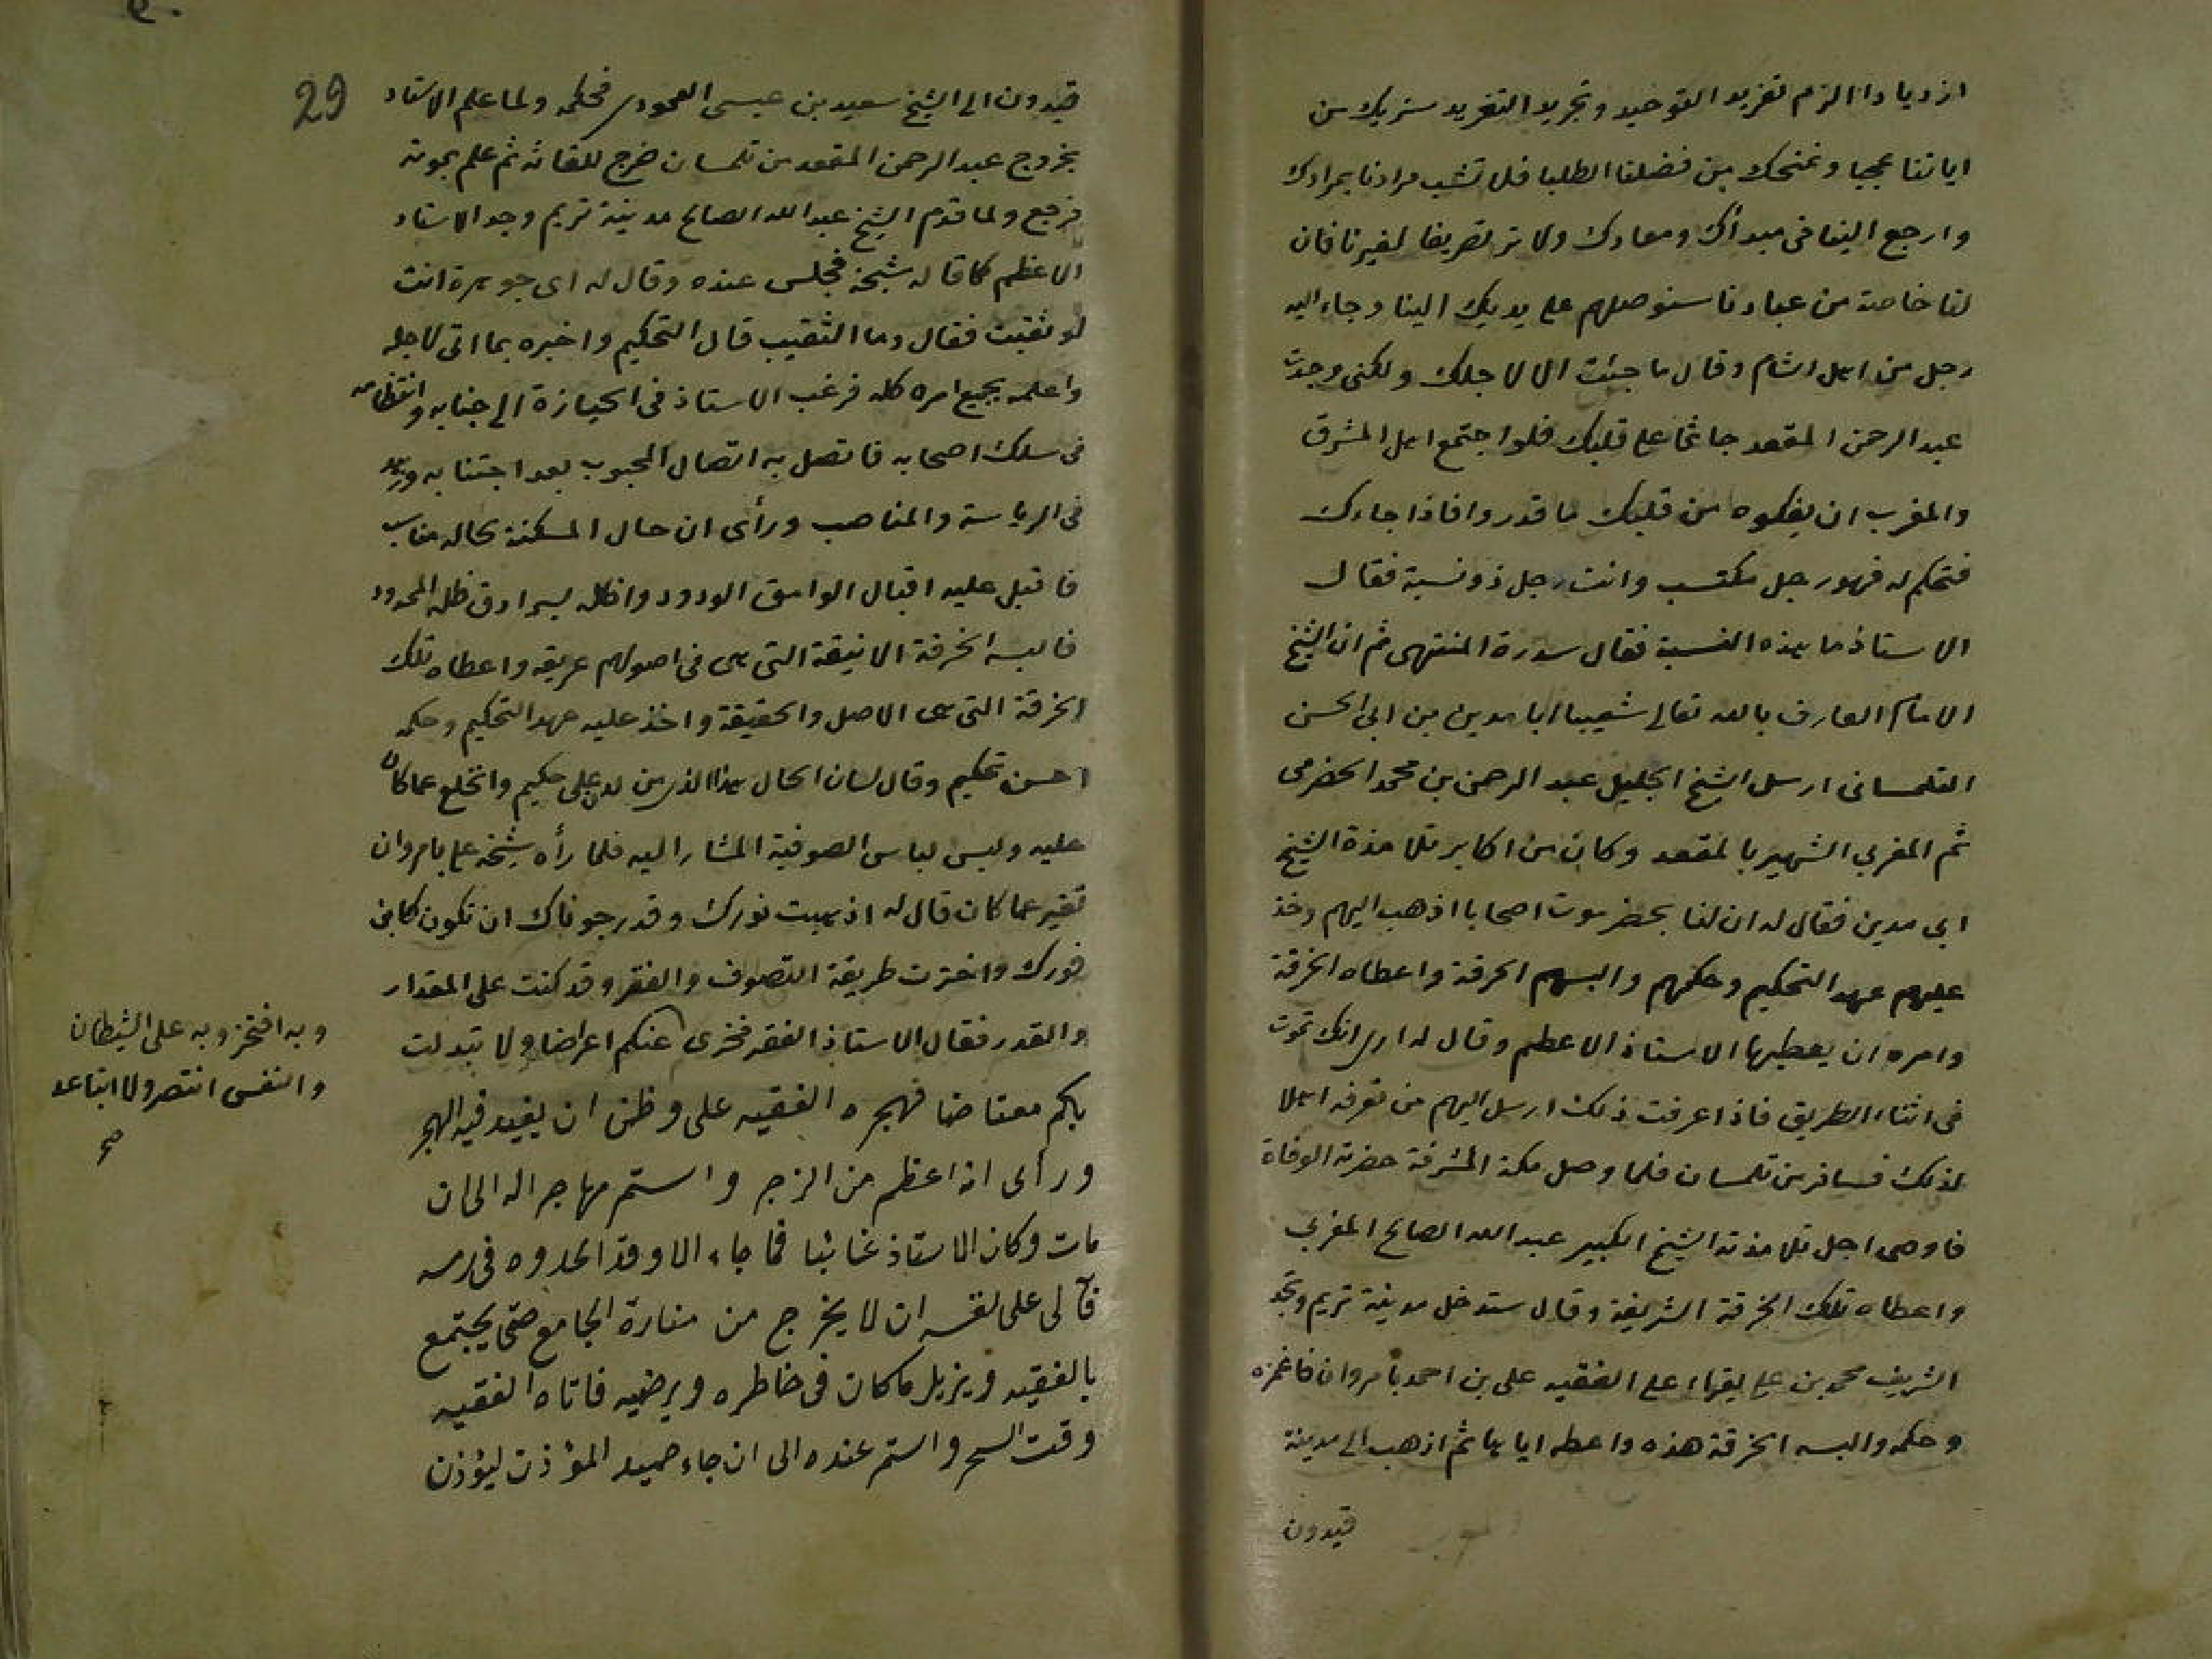 ازديادا الزم تفريد التوحيد وتجريد التفريد سنريك من
اياتنا عجبا ونمنحك من فضلنا الطلبا فلا تشب مرادنا بمرادك
وارجع الينا فى مبدأك ومعادك ولا تر تصريفا لغيرنا فان
لنا خاصة من عبادنا سنوصلهم على يديك الينا وجاء اليه
رجل من اهل الشام وقال ما جئت الا لاجلك ولكنى وجدت
عبد الرحمن المقعد جاثما على قلبك فلو اجتمع اهل المشرق
والمغرب ان يفكوه من قلبك ما قدروا فاذا جاءك
فتحكم له فهو رجل مكتسب وانت رجل ذو نسبة فقال
الاستاذ ما هذه النسبة فقال سدرة المنتهى ثم ان الشيخ
الامام العارف بالله تعالى شعيبا ابا مدين بن ابى الحسن
التلمسانى ارسل الشيخ الجليل عبد الرحمن بن محمد الحضرمى
ثم المغربى الشهير بالمقعد وكان من اكابر تلامذة الشيخ
ابى مدين فقال له ان لنا بحضرموت اصحابا اذهب اليهم وخذ
عليهم عهد التحكيم وحكمهم والبسهم الخرقة واعطاه الخرقة
وامره ان يعطيها الاستاذ الاعظم وقال له ارى انك تموت
فى اثناء الطريق فاذا عرفت ذلك ارسل اليهم من تعرفه اهلا
لذلك فسافر من تلمسان فلما وصل مكة المشرفة حضرته الوفاة
فاوصى اجل تلامذته الشيخ الكبير عبد الله الصالح المغربى
واعطاه تلك الخرقة الشريفة وقال ستدخل مدينة تريم وتجد
الشريف محمد بن على يقراء على الفقيه على بن احمد بامروان فاغمزه
وحكمه والبسه الخرقة هذه واعطه اياها ثم اذهب الى مدينة
قيدون
29
قيدون الى الشيخ سعيد بن عيسى العمودى فحكمه ولما علم الاستاد
بخروج عبد الرحمن المقعد من تلمسان خرج للقائه ثم علم بموته
فرجع ولما قدم الشيخ عبد الله الصالح مدينة تريم وجد الاستاد
الاعظم كما قاله شيخه فجلس عنده وقال له اى جوهرة انت
لو ثقبت فقال وما التثقيب قال التحكيم واخبره بما اتى لاجله
واعلمه بجميع امره كله فرغب الاستاذ فى الحيازة الى جنابه وانتظامه
فى سلك اصحابه فاتصل به اتصال المحبوب بعد اجتنابه وزهد
فى الرياسة والمناصب ورأى ان حال المسكنة بحاله مناسب
فاقبل عليه اقبال الوامق الودود واظله بسرادق ظله الممدود
فالبسه الخرقة الانيقة التى هى فى اصولهم عريقه واعطاه تلك
الخرقة التى هى الاصل والحقيقة واخذ عليه عهد التحكيم وحكمه
احسن تحكيم وقال لسان الحال هذا الذى من لدن على حكيم وانخلع عما كان
عليه ولبس لباس الصوفية المشار اليه فلما رأه شيخه على بامروان
تغير عما كان قال له اذهبت نورك وقد رجوناك ان تكون كابن
فورك واخترت طريقة التصوف والفقر وقد كنت على المقدار
والقدر فقال الاستاذ الفقر فخرى عنكم اعراضا ولا تبدلت
بكم معتاضا فهجره الفقيه على وظن ان يفيد فيه الهجر
ورأى انه اعظم من الزجر واستمر مهاجرا له الى ان
مات وكان الاستاذ غائبا فما جاء الا وقد الحدوه فى رمسه
فآلى على نفسه ان لا يخرج من منارة الجامع حتى يجتمع
بالفقيه ويزيل ما كان فى خاطره ويرضيه فاتاه الفقيه
وقت السحر واستمر عنده الى ان جاء حميد المؤذن ليؤذن
وبه افتخر وبه على الشيطان
والنفس انتصر ولا اتباعد
صح